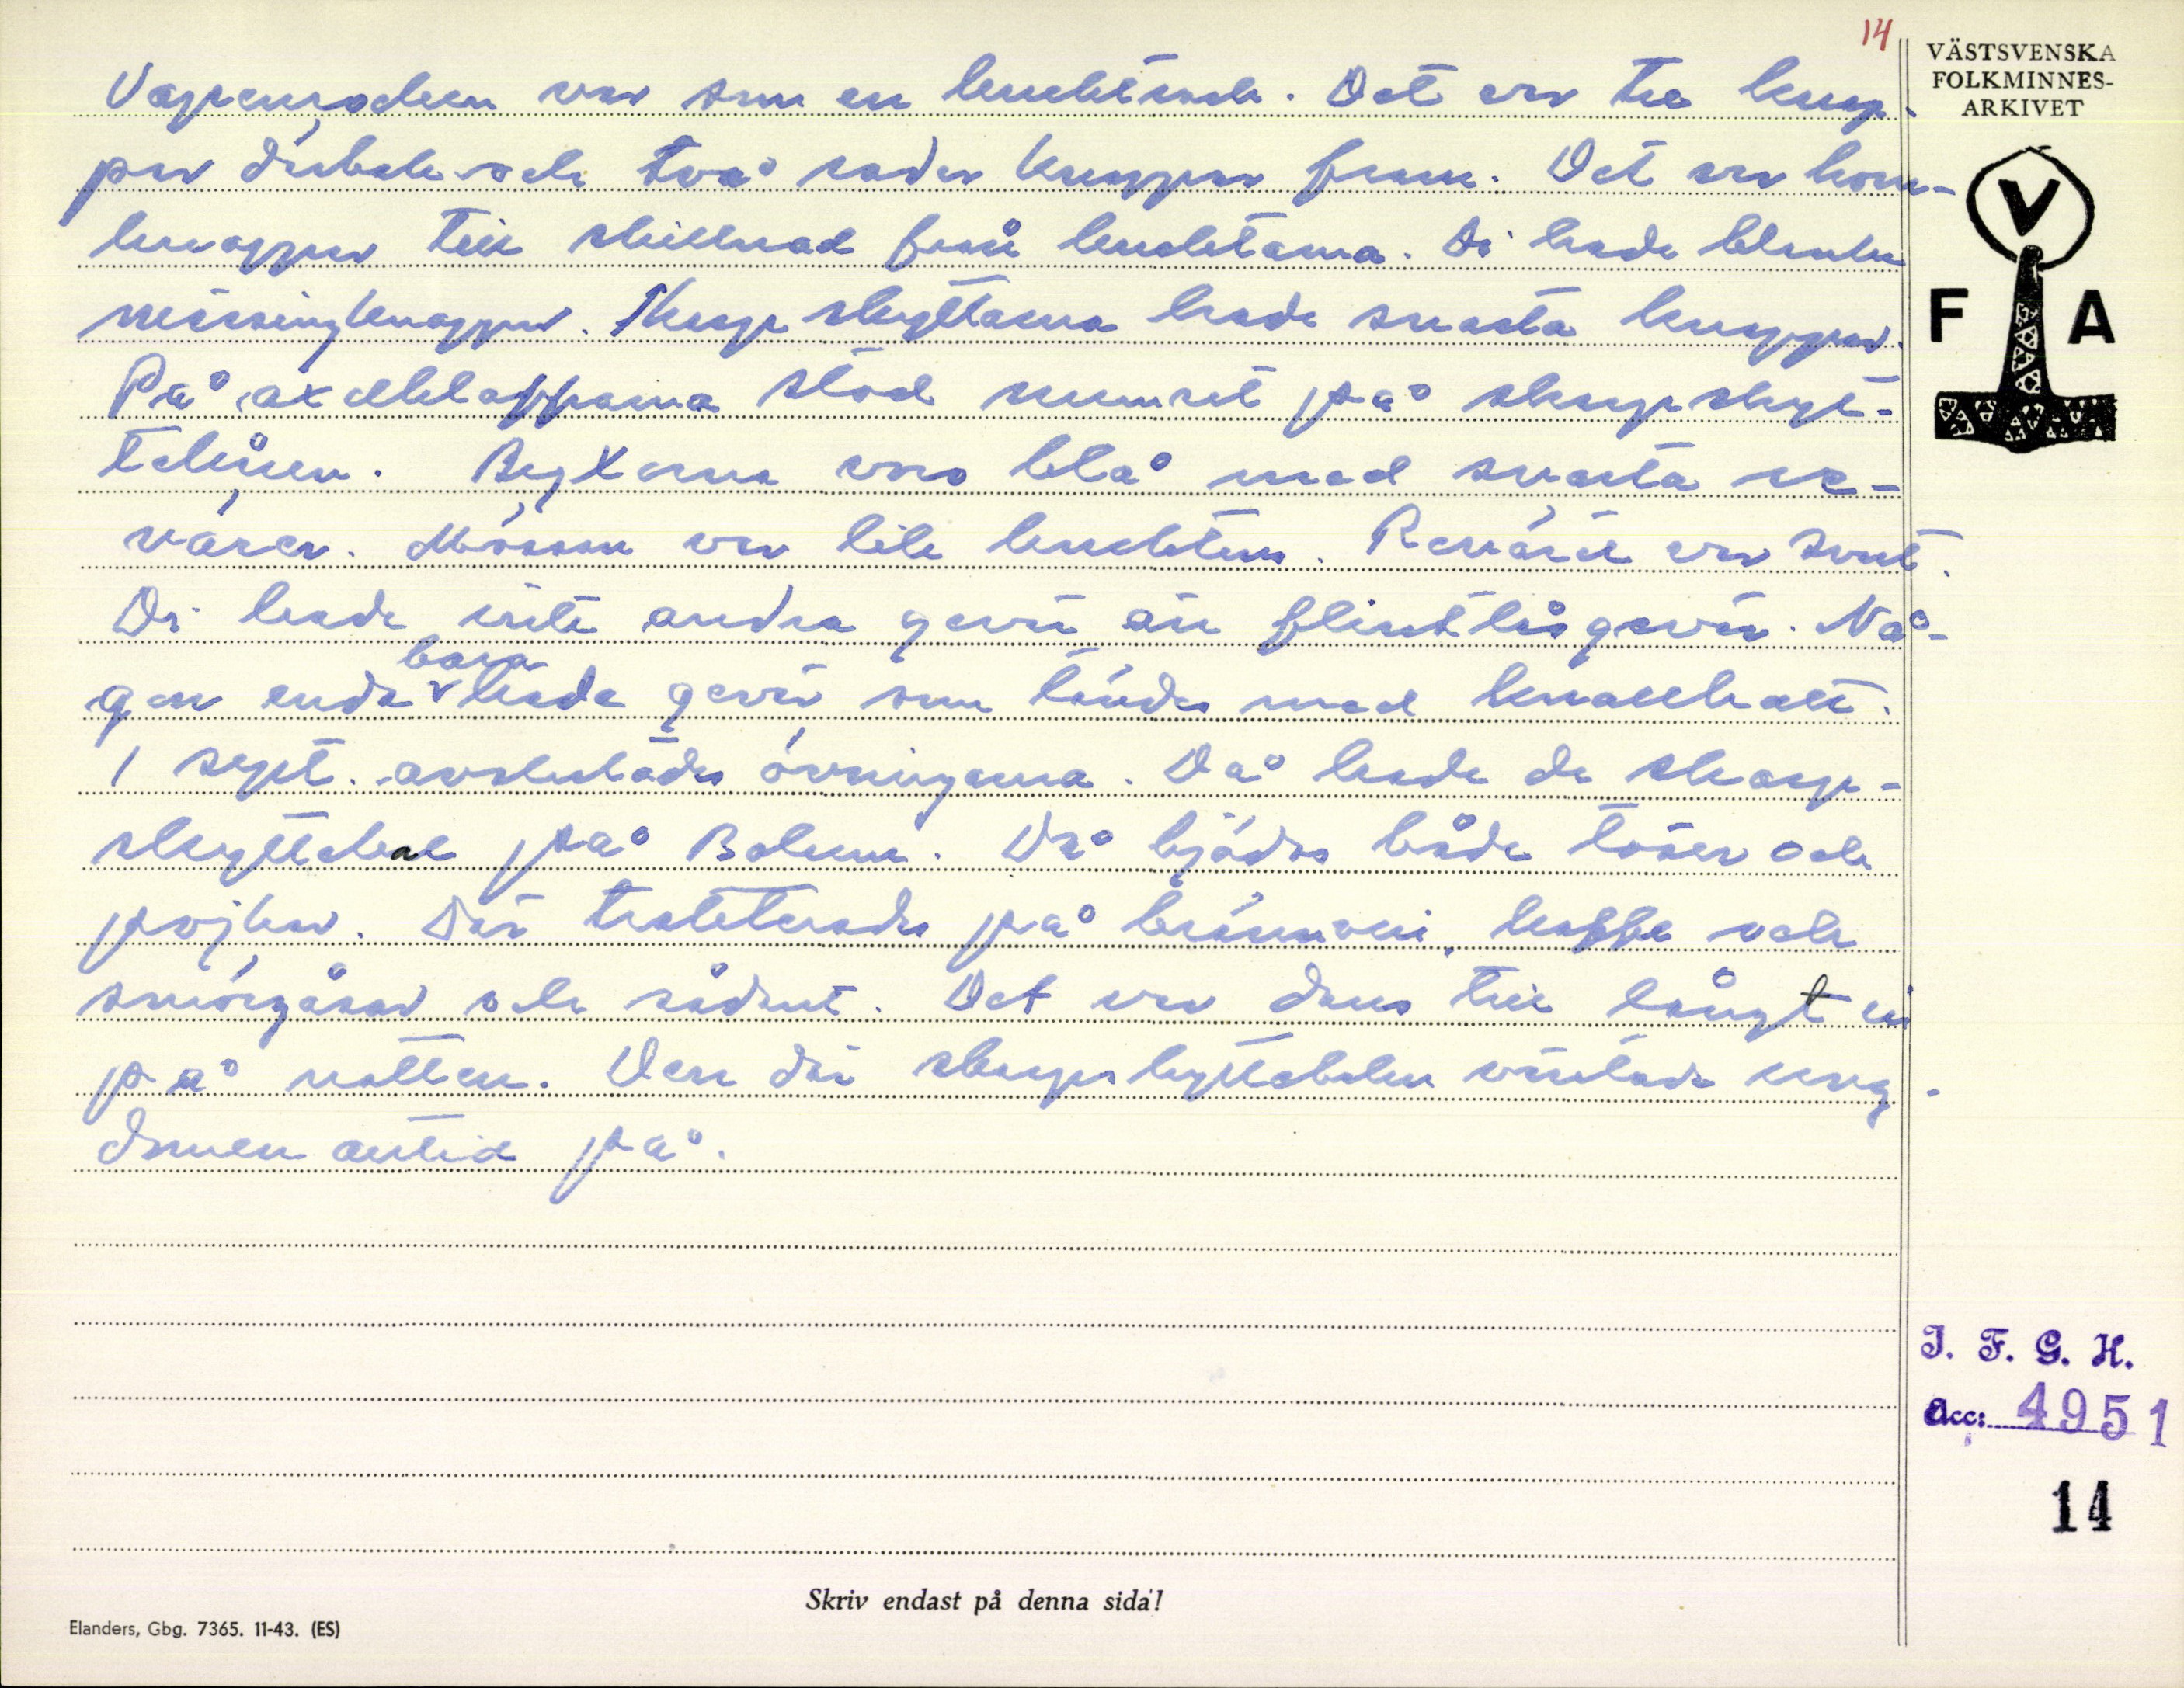 14
VÄSTSVENSKA
FOLKMINNES-
ARKIVET
V
F A
Vapenrocken var som en knektrock. Det var tre knap-
par därbak och två rader knappar fram. Det var horn-
knappar till skillnad från knektarna. Di hade blanka
mässingknappar. Skarpskyttarna hade svarta knappar.
På axelklapparna stod numret på skarpskyt-
tekåren. Byxorna voro blå med svarta re-
värer. Mössan var lik knektens. Reväret var svart.
Di hade inte andra gevär än flintlåsgevär. Nå-
bara
gon enda hade gevär som tändes med knallhatt.
I sept. avslutades övningarna. Då hade de skarp-
skyttebal på Bolum. Då bjödos både töser och
pojkar. Där trakterades på brännvin, kaffe och
smörgåsar och sådant. Det var dans till långt in
på natten. Den där skarpskyttebalen väntade ung-
domen alltid på.
J. F. G. H.
Acc: 4951
14
Skriv endast på denna sida!
Elanders, Gbg. 7365. 11-43. (ES)